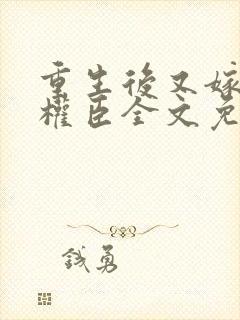 重生後又嫁
權臣全文免
錢勇